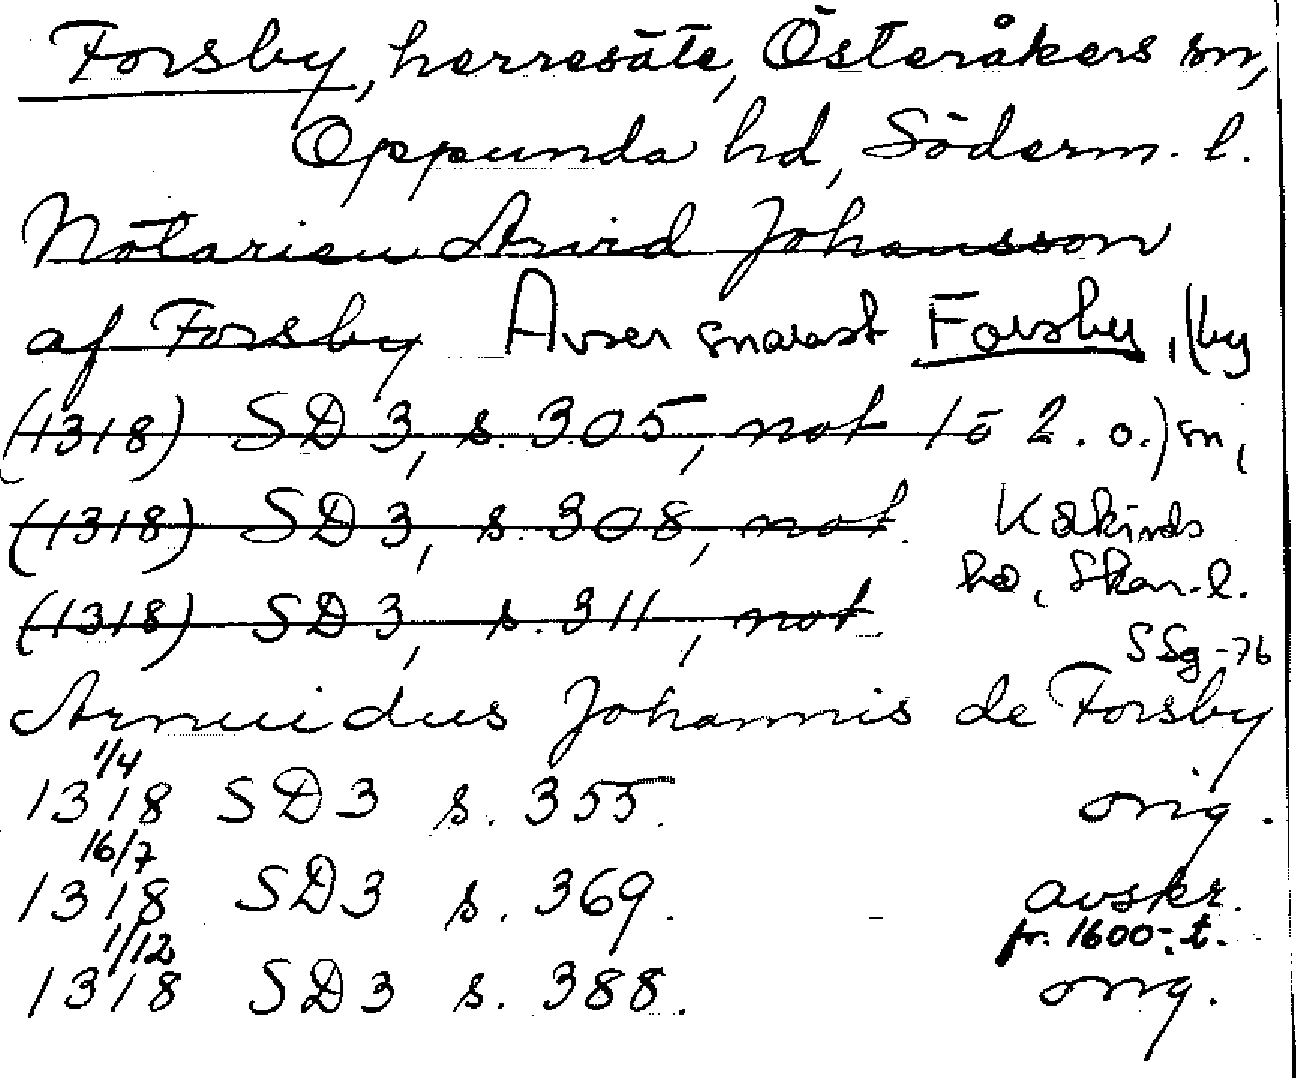 Forsby, herresäte, Österåkers sn,
Oppunda hd, Söderm. l.
Notarien Arvid Johansson
af Forsby Avser snarast Forsby, (by
(1318) SD 3, s. 305, not 1 o 2. o.) sn,
(1318) SD 3, s. 308, not. Kåkinds
(1318) SD 3, s. 311, not hd, Skar. l.
SSg -76
Arnuidus Johannis de Forsby
1/4
1318 SD 3 s. 355. orig.
16/7
1318 SD 3 s. 369. avskr.
1/12 fr. 1600-t.
1318 SD 3 s. 388. orig.